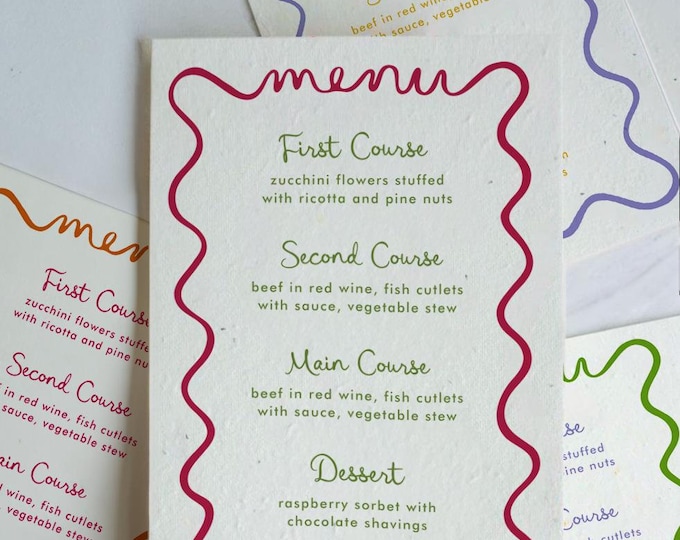 menu
First Course
zucchini flowers stuffed
with ricotta and pine nuts
Second Course
beef in red wine, fish cutlets
with sauce, vegetable stew
Main Course
beef in red wine, fish cutlets
with sauce, vegetable stew
Dessert
raspberry sorbet with
chocolate shavings
men
First Course
zucchini flowers stuffed
with ricotta and pine nuts
Second Course
in red wine, fish cutlets
sauce, vegetable stew
Main Course
red wine, fish cutlets
sauce, vegetable stew
Second Course
beef in red wine, fish cutlets
with sauce, vegetable stew
u
Course
stuffed
pine nuts
Course
fish cutlets
vegetable stew